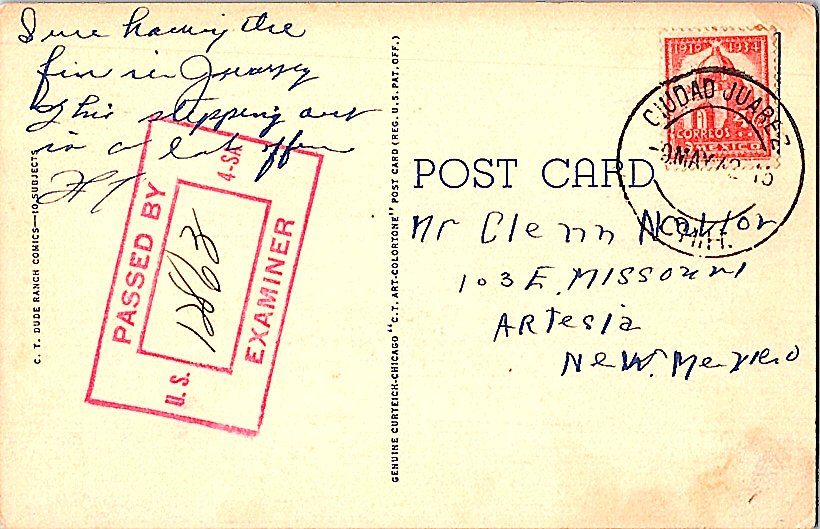 Sure having the
fun in Juarez
This stepping out
is a lot of fun
POST CARD
Mr Glenn Naylor
103 E. Missouri
Artesia
New. Mexico
1910 1934
CORREOS
MEXICO
CIUDAD JUAREZ
-9 MAY 42 -15
CHIH.
PASSED BY
U.S. 12863 4-SA
EXAMINER
C. T. DUDE RANCH COMICS—10 SUBJECTS
GENUINE CURTEICH-CHICAGO "C. T. ART-COLORTONE" POST CARD (REG. U. S. PAT. OFF.)